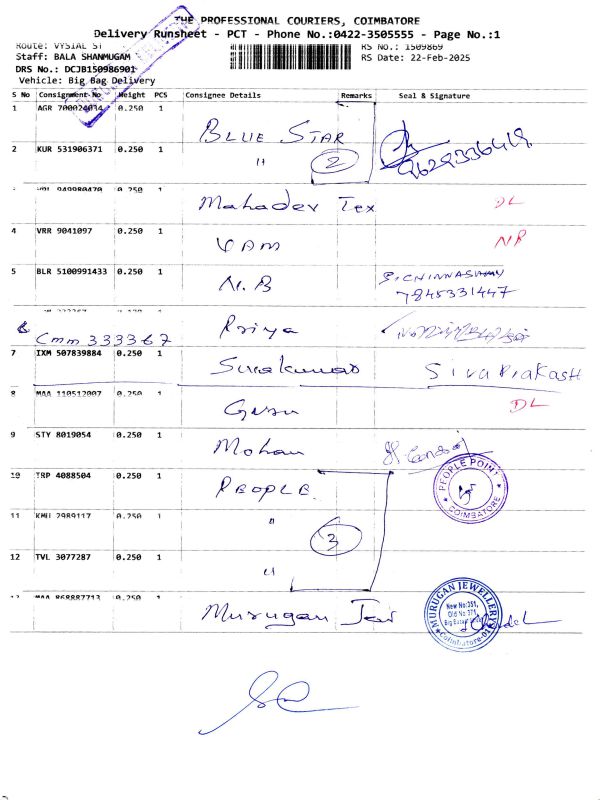 THE PROFESSIONAL COURIERS, COIMBATORE
Delivery Runsheet - PCT - Phone No.:0422-3505555 - Page No.:1
Route: VYSIAL ST RS No.: 1509869
Staff: BALA SHANMUGAM RS Date: 22-Feb-2025
DRS No.: DCJB150986901
Vehicle: Big Bag Delivery
S No Consignment No Weight PCS Consignee Details Remarks Seal & Signature
1 AGR 700024034 0.250 1 BLUE STAR
2 KUR 531906371 0.250 1 " 2 9629336419
949980470 0.250 1 Mahadev Tex DL
4 VRR 9041097 0.250 1 VAM NR
5 BLR 5100991433 0.250 1 N.B S.CHINNASWAMY
7845331447
6 Cmm 333367 Priya
7 IXM 507839884 0.250 1 Sivakumar Siva Prakash
8 MAA 110512007 0.250 1 DL
9 STY 8019054 0.250 1 Mohan
10 TRP 4088504 0.250 1 PEOPLE
PEOPLE POINT
COIMBATORE
11 KMU 2989117 0.250 1 " 3
12 TVL 3077287 0.250 1 "
13 MAA 868887713 0.250 1 Murugan Jew
MURUGAN JEWELLERY
New No:351,
Old No 371,
Coimbatore-01